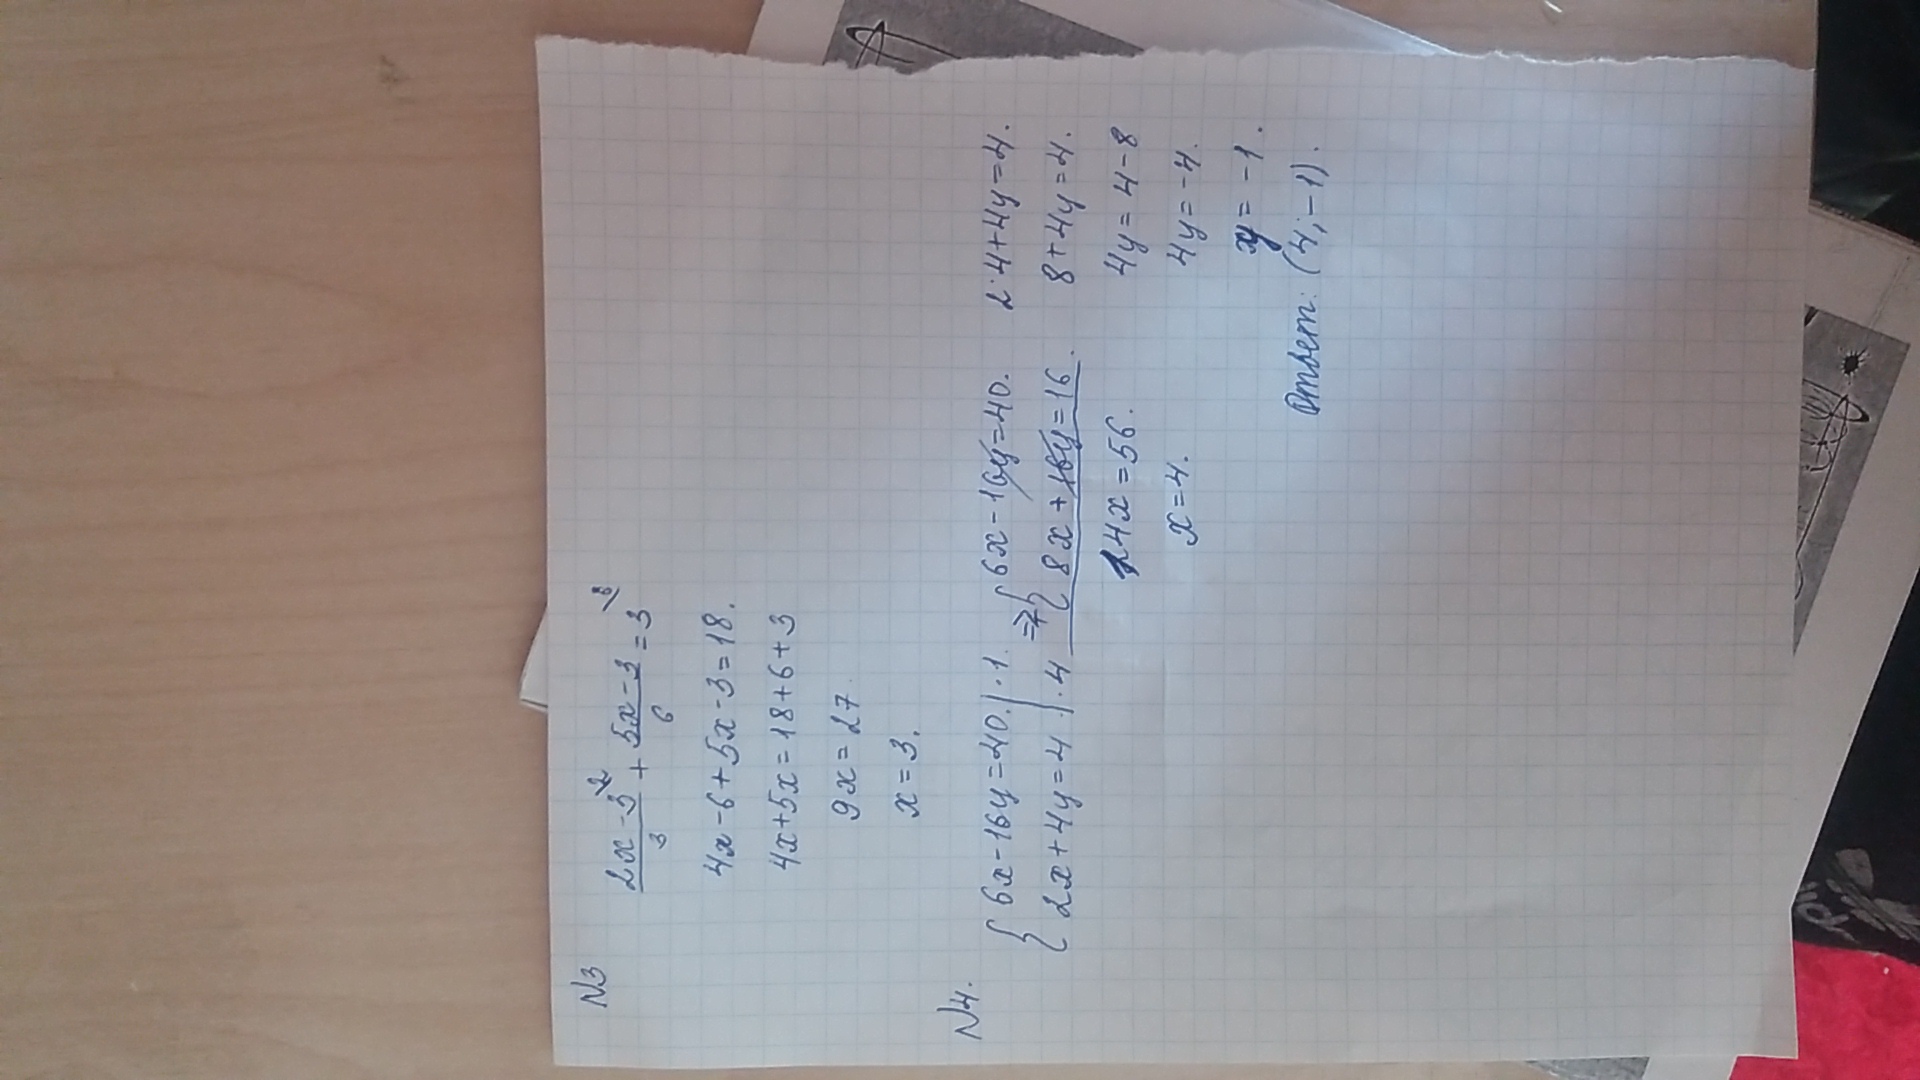 N3
(2x-3)/3 \2 + (5x-3)/6 = 3 \6
4x-6+5x-3=18.
4x+5x=18+6+3
9x=27.
x=3.
N4.
{ 6x-16y=40. |·1. => { 6x-16y=40.
{ 2x+4y=4. |·4 { 8x+16y=16.
14x=56.
x=4.
2·4+4y=4.
8+4y=4.
4y=4-8
4y=-4.
y=-1.
Ответ: (4;-1).